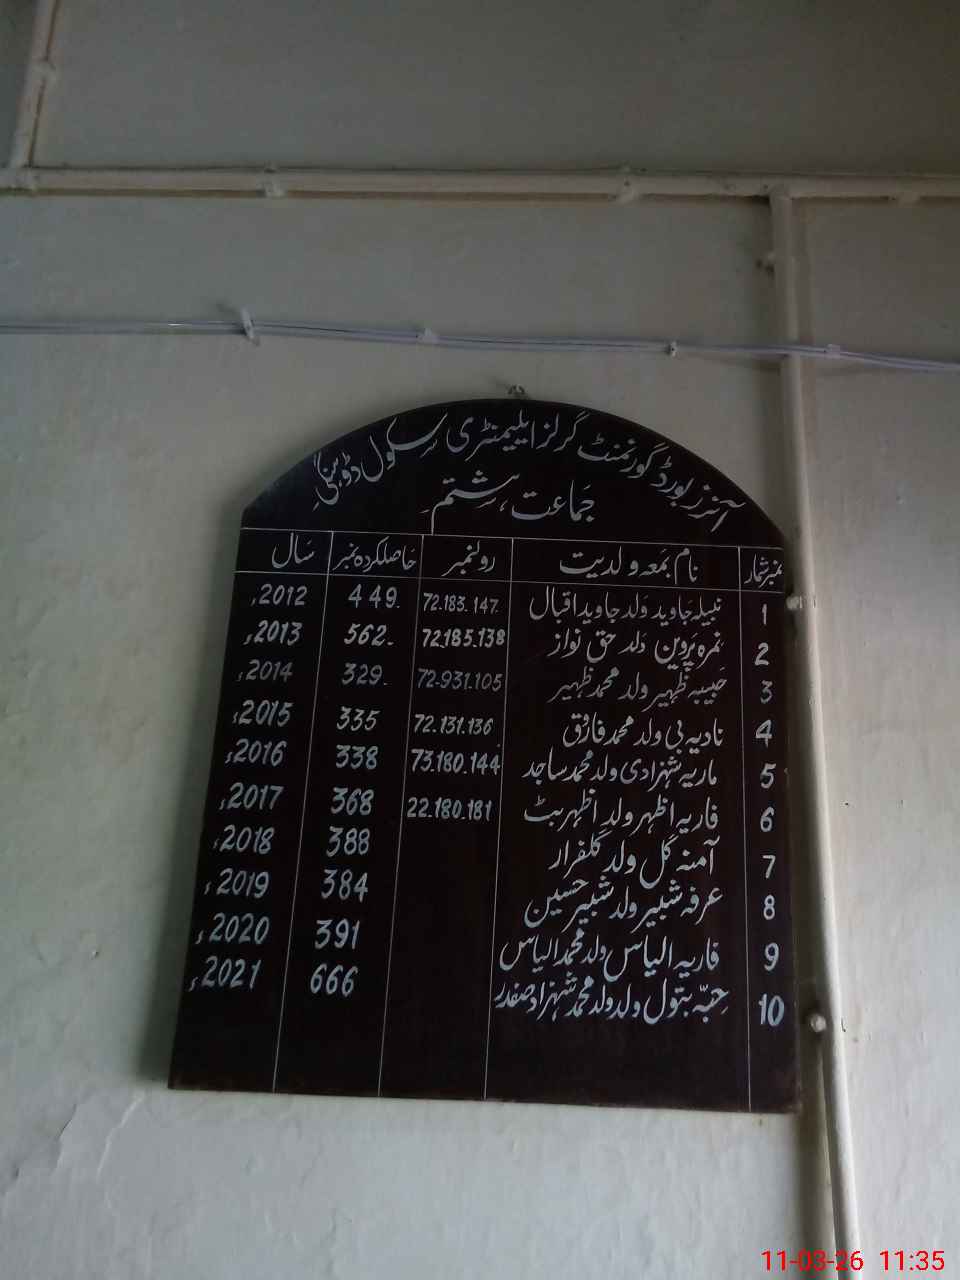 آنرز بورڈ گورنمنٹ گرلز ایلیمنٹری سکول ڈوہنگی
جماعت ہشتم
نمبر شمار نام بمعہ ولدیت رولنمبر حاصلکردہ نمبر سال
1 نبیلہ جاوید ولد جاوید اقبال 72.183.147 449 2012ء
2 نمرہ پروین ولد حق نواز 72.185.138 562 2013ء
3 حبیبہ ظہیر ولد محمد ظہیر 72-931.105 329 2014ء
4 نادیہ بی ولد محمد فاروق 72.131.136 335 2015ء
5 ماریہ شہزادی ولد محمد ساجد 73.180.144 338 2016ء
6 فاریہ اظہر ولد اظہر بٹ 22.180.181 368 2017ء
7 آمنہ گل ولد گلفراز 388 2018ء
8 عرفہ شبیر ولد شبیر حسین 384 2019ء
9 فاریہ الیاس ولد محمد الیاس 391 2020ء
10 حبّہ بتول ولد ولد محمد شہزاد صفدر 666 2021ء
11-03-26 11:35